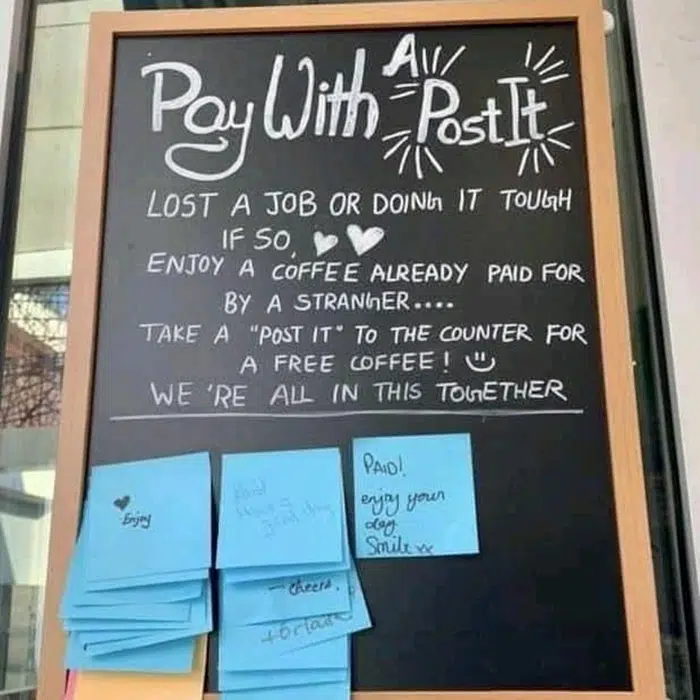 Pay With A Post It
LOST A JOB OR DOING IT TOUGH
IF SO,
ENJOY A COFFEE ALREADY PAID FOR
BY A STRANGER....
TAKE A "POST IT" TO THE COUNTER FOR
A FREE COFFEE!
WE'RE ALL IN THIS TOGETHER
Enjoy
Paid
Have a
good day
cheers.
PAID!
enjoy your
day
Smile xx